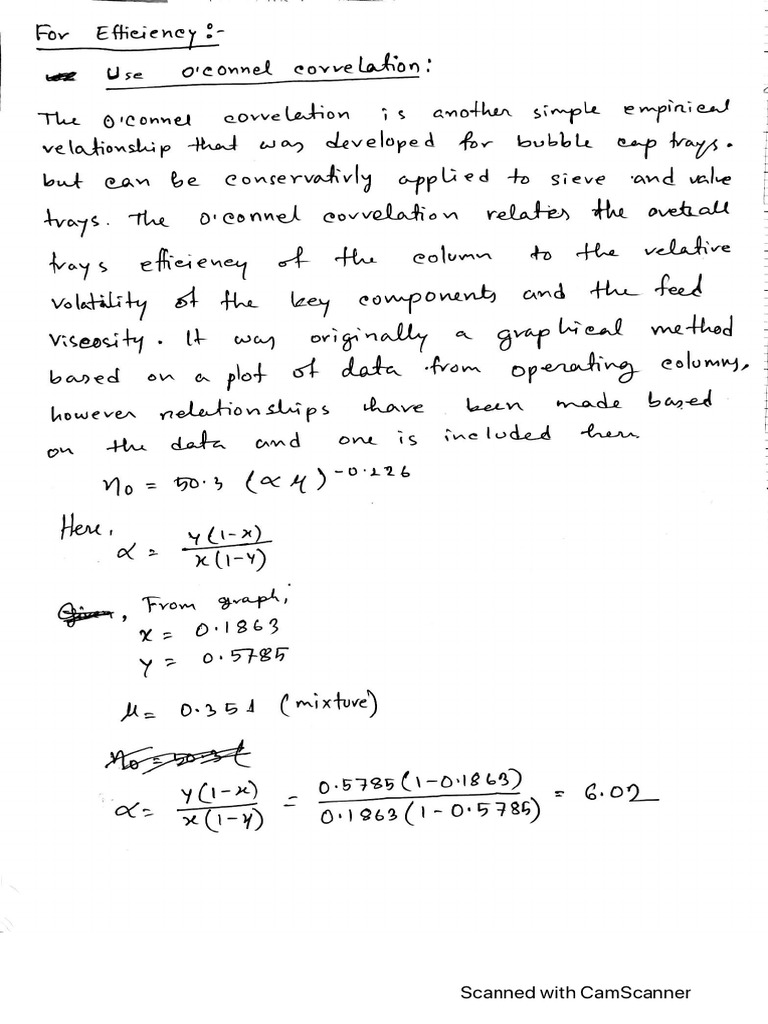 For Efficiency:-
Use O'connel correlation:
The O'connel correlation is another simple empirical
relationship that was developed for bubble cap trays.
but can be conservativly applied to sieve and valve
trays. The O'connel correlation relates the overall
trays efficiency of the column to the relative
volatility of the key components and the feed
viscosity. It was originally a graphical method
based on a plot of data from operating columns,
however relationships have been made based
on the data and one is included here.
η₀ = 50.3 (αμ)^-0.226
Here,
α = y(1-x) / x(1-y)
Given, From graph;
x = 0.1863
y = 0.5785
μ = 0.351 (mixture)
η₀ = 50.3 (
α = y(1-x) / x(1-y) = 0.5785(1-0.1863) / 0.1863(1-0.5785) = 6.02
Scanned with CamScanner